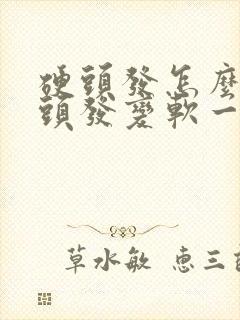 硬頭發怎麼
頭發變軟一
草水敏 惠三